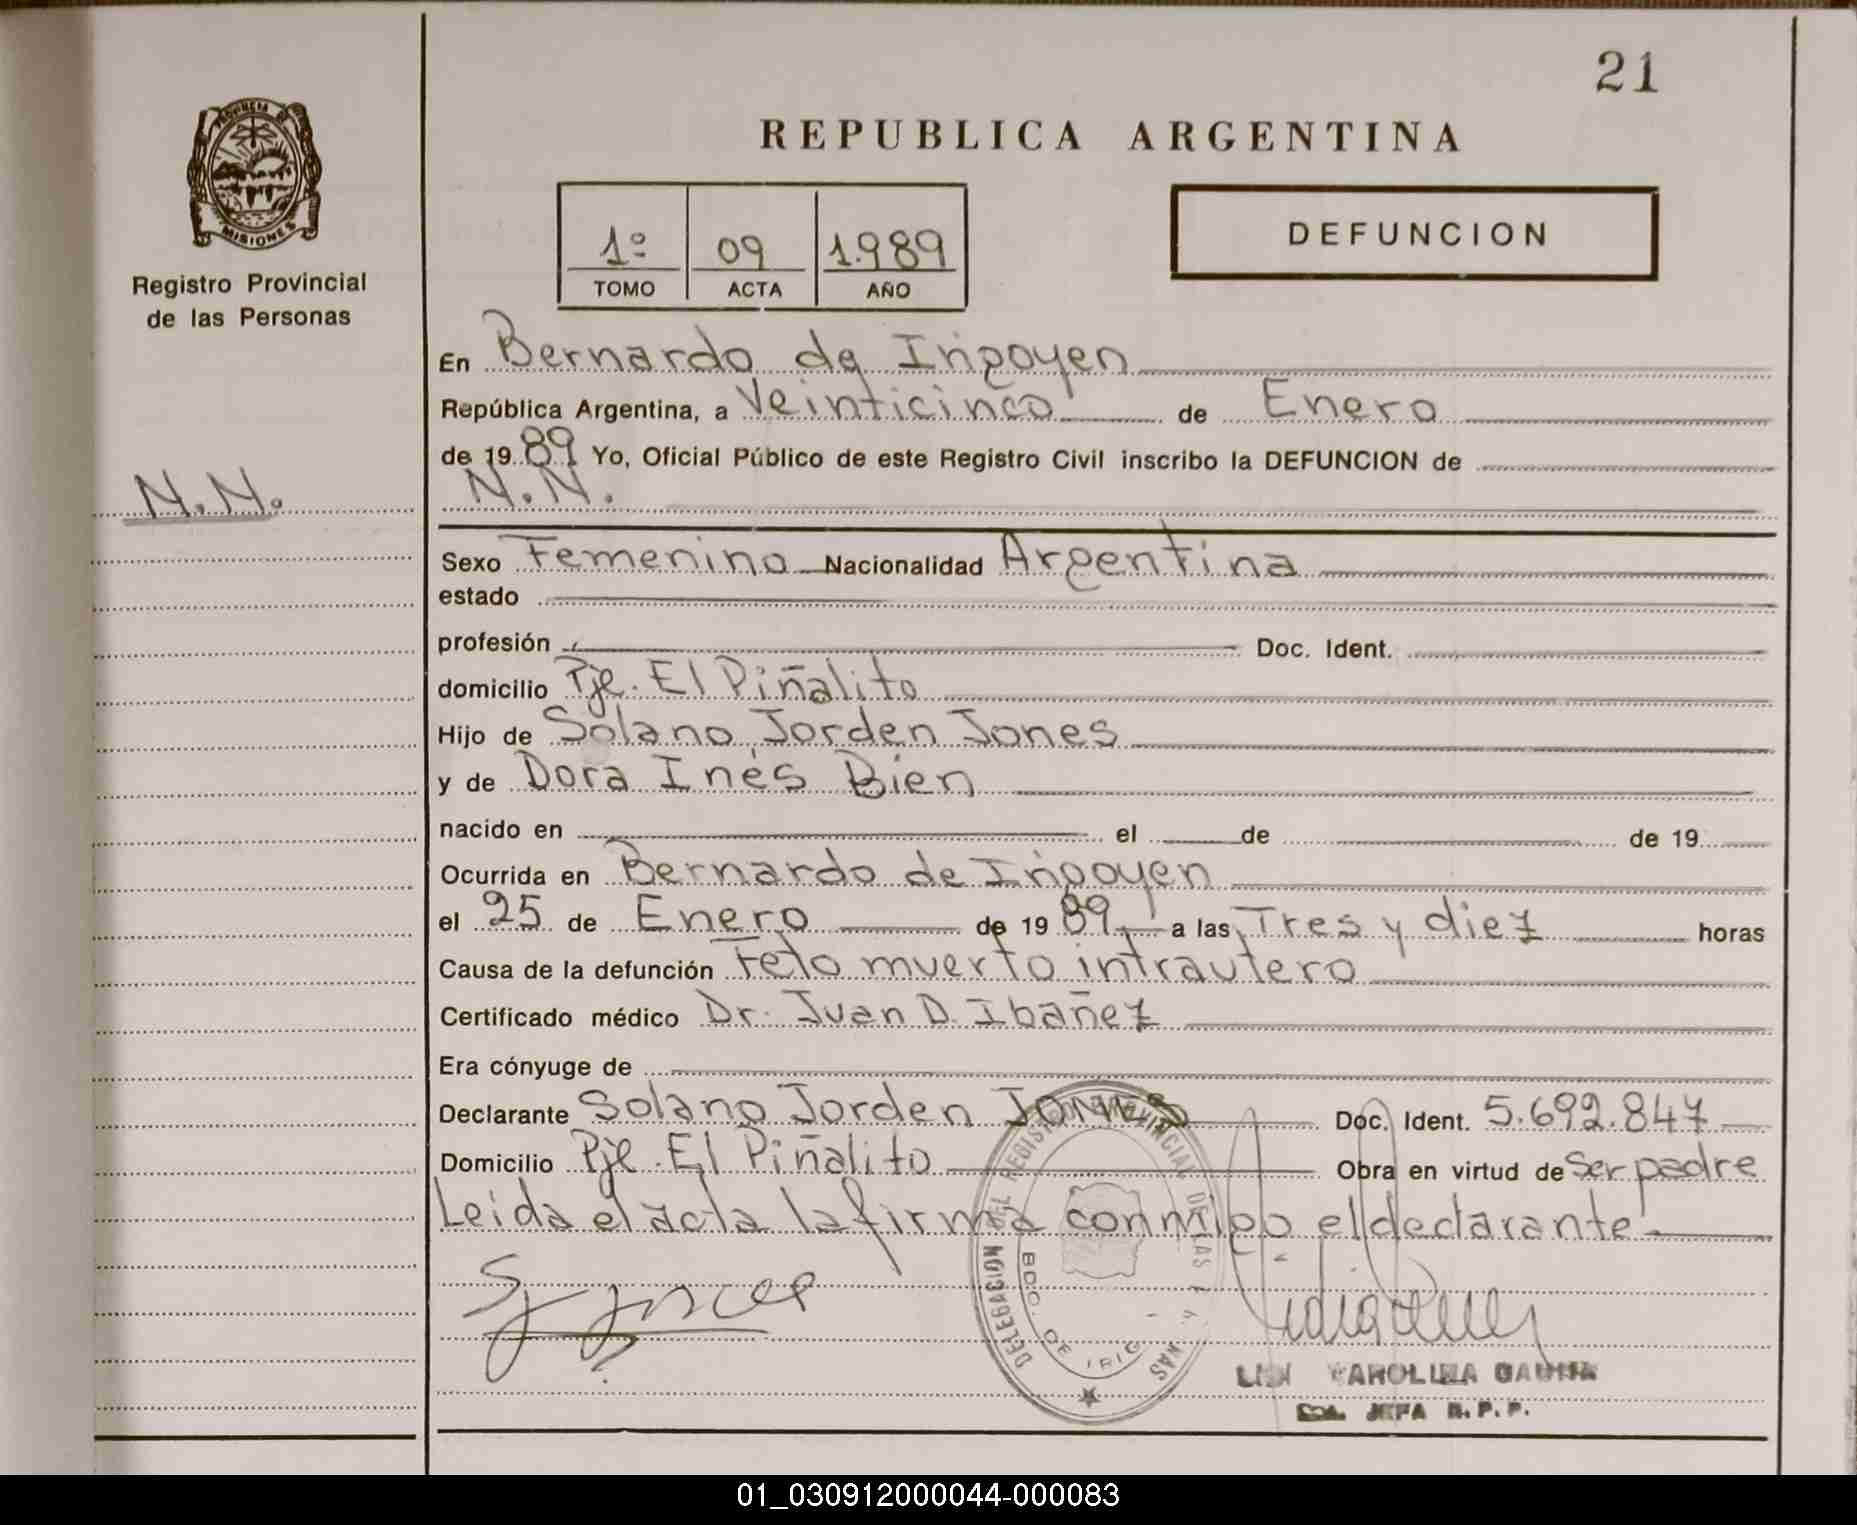 21
PROVINCIA DE
MISIONES
Registro Provincial
de las Personas
N.N.
REPUBLICA ARGENTINA
1º 09 1.989
TOMO ACTA AÑO
DEFUNCION
En Bernardo de Irigoyen
República Argentina, a Veinticinco de Enero
de 1989 Yo, Oficial Público de este Registro Civil inscribo la DEFUNCION de
N.N.
Sexo Femenino Nacionalidad Argentina
estado
profesión Doc. Ident.
domicilio Pje. El Piñalito
Hijo de Solano Jorden Jones
y de Dora Inés Bien
nacido en el de de 19
Ocurrida en Bernardo de Irigoyen
el 25 de Enero de 1989 a las Tres y diez horas
Causa de la defunción Feto muerto intrautero
Certificado médico Dr. Juan D. Ibañez
Era cónyuge de
Declarante Solano Jorden Jones Doc. Ident. 5.692.847
Domicilio Pje. El Piñalito Obra en virtud de Ser padre
Leida el acta la firma conmigo el declarante
DELEGACION DEL REGISTRO PROVINCIAL DE LAS
BDO. DE IRIG
CAROLINA
JEFA R.P.P.
01_030912000044-000083